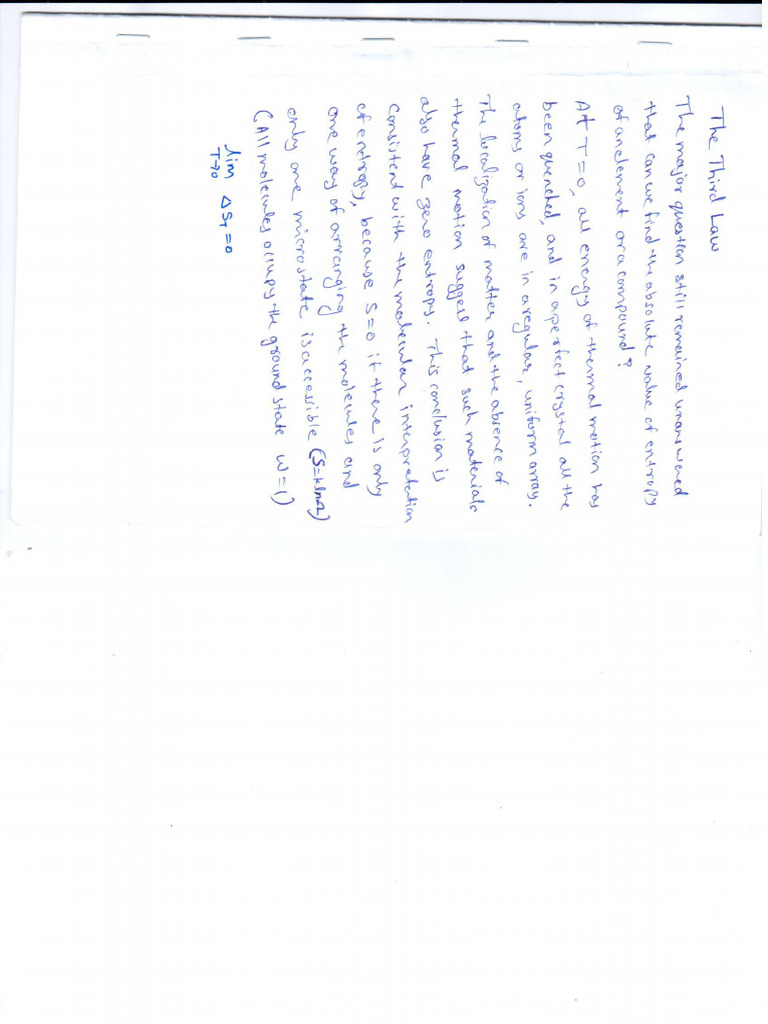 The Third Law
The major question still remained unanswered
that can we find the absolute value of entropy
of an element or a compound?
At T=0, all energy of thermal motion has
been quenched, and in a perfect crystal all the
atoms or ions are in a regular, uniform array.
The localization of matter and the absence of
thermal motion suggest that such materials
also have zero entropy. This conclusion is
consistent with the molecular interpretation
of entropy, because S=0 if there is only
one way of arranging the molecules and
only one microstate is accessible (S=klnΩ)
(All molecules occupy the ground state W=1)
lim ΔS_T=0
T→0